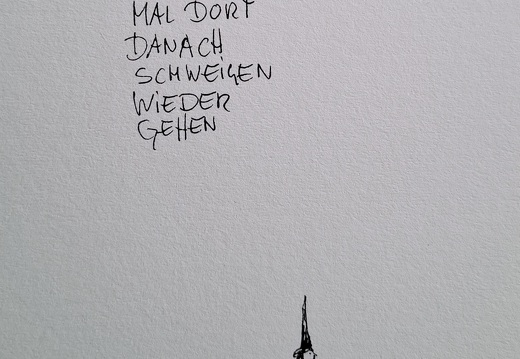 MAL DORT
DANACH
SCHWEIGEN
WIEDER
GEHEN